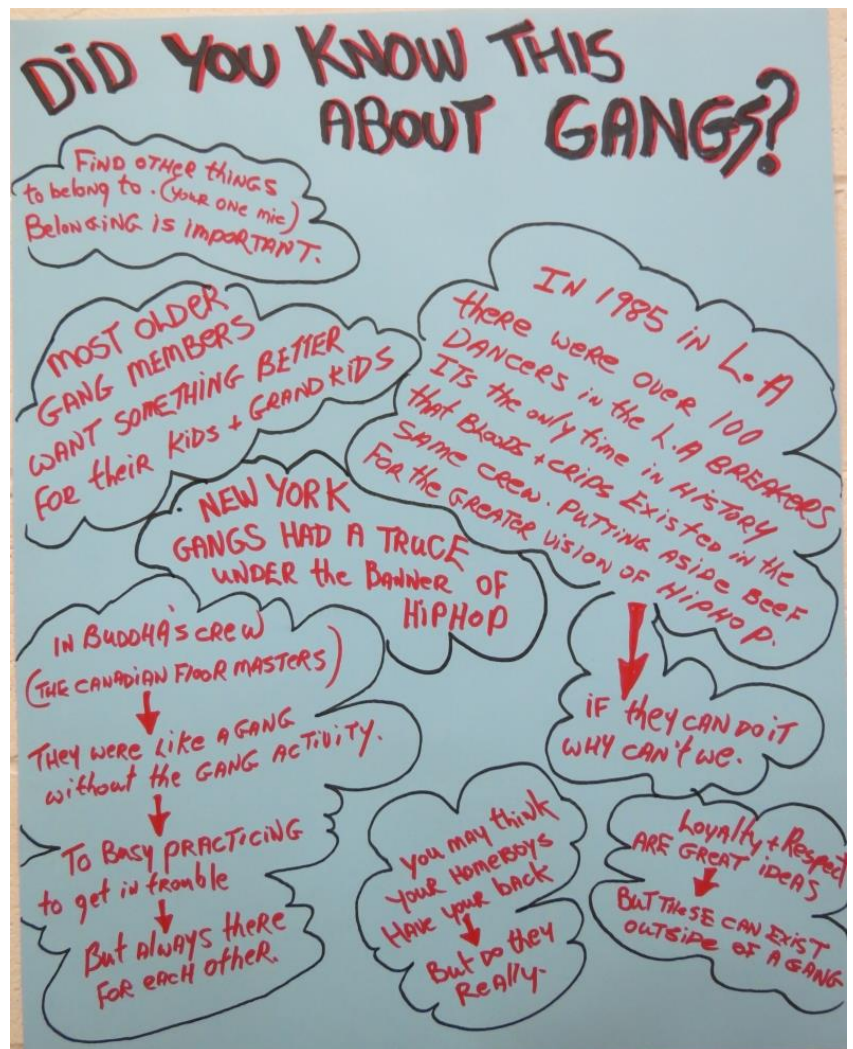 DiD YOU KNOW THIS
ABOUT GANGS?
FiND OTHER tHiNGS
to belong to. (YOUR ONE mic)
BELONGiNG IS impORTANT.
MOST OLDER
GANG MEMBERS
WANT SOMETHING BETTER
FOR their KiDS + GRAND KiDS
IN 1985 iN L.A
there WERE OVER 100
DANCERS iN the L.A BREAKERS
ITS the only time iN HISTORY
that BLOODS + CRIPS EXISTED iN the
SAME CREW. PUTTING ASIDE BEEF
FOR the GREATER VISION OF HIPHOP.
NEW YORK
GANGS HAD A TRUCE
UNDER the BANNER OF
HiPHOP
IN BUDDHA'S CREW
(THE CANADIAN FlOOR MASTERS)
THEY WERE Like A GANG
without the GANG ACTiViTY.
To Busy PRACTICING
to get in trouble
But Always there
FOR eacH OtHeR.
iF they CAN DO iT
WHY CAN't we.
you may think
your HomeBoys
HAVE your back
But Do they
Really.
Loyalty + Respect
ARE GREAT iDEAS
BUT THeSE CAN EXIST
OUTSIDe OF A GANG